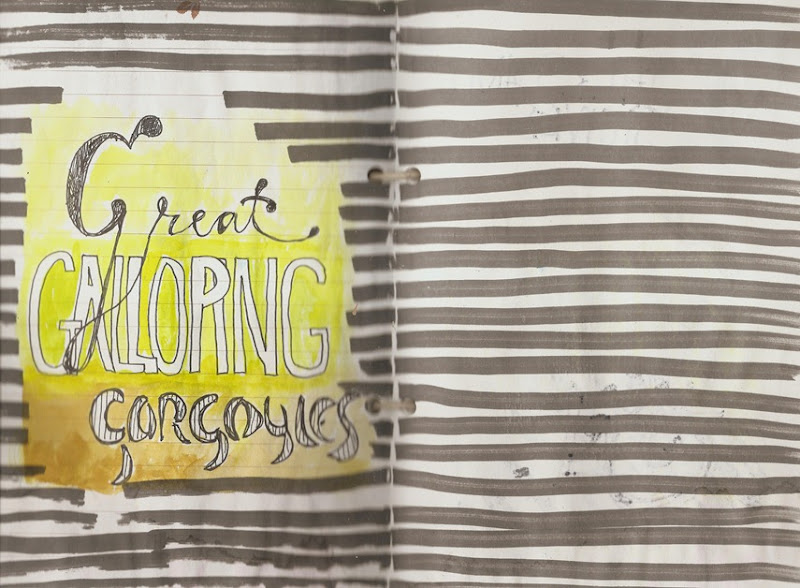 Great
GALLOPING
GARGOYLES